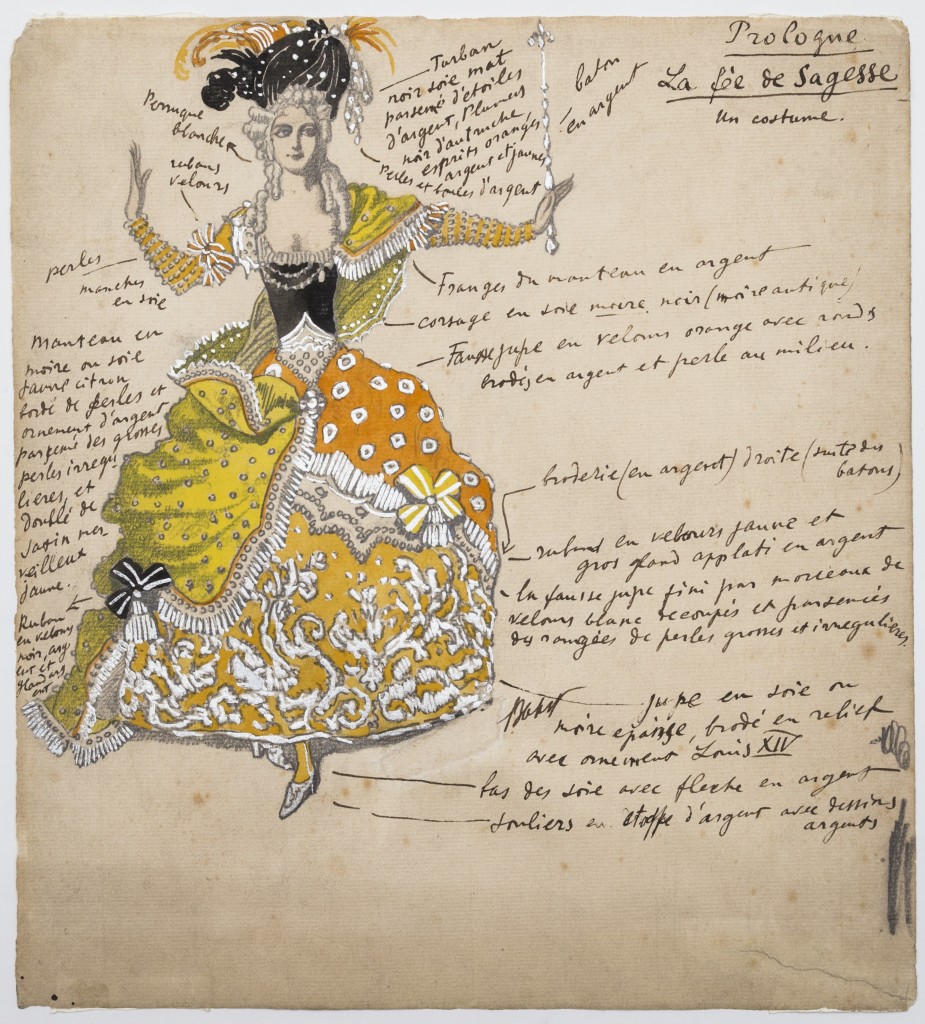 Prologue
La fée de Sagesse
Un costume.
Turban
noir soie mat
parsemé d'étoiles
d'argent, Plumes
noir d'autruche
esprits orangés
Perles argent et jaunes
et boules d'argent
baton
en argent
Perruque
blanche
rubans
velours
perles
manches
en soie
Franges du manteau en argent
corsage en soie moire noir (moire antique)
Fausse jupe en velours orange avec ronds
brodés en argent et perle au milieu.
manteau en
moire ou soie
jaune citron
bordé de perles et
ornement d'argent
parsemé des grosses
perles irregu
lieres, et
doublé de
satin mer
veilleux
jaune.
Ruban
en velours
noir, arg
ent et
gland arg
ent
broderie (en argent) droite (suite des
batons)
ruband en velours jaune et
gros gland applati en argent
la fausse jupe fini par morceaux de
velours blanc decoupés et parsemés
des rangées de perles grosses et irregulieres.
Bakst
jupe en soie ou
moire epaisse, brodé en relief
avec ornement Louis XIV
bas des soie avec fleche en argent
souliers en etoffe d'argent avec dessins
argents